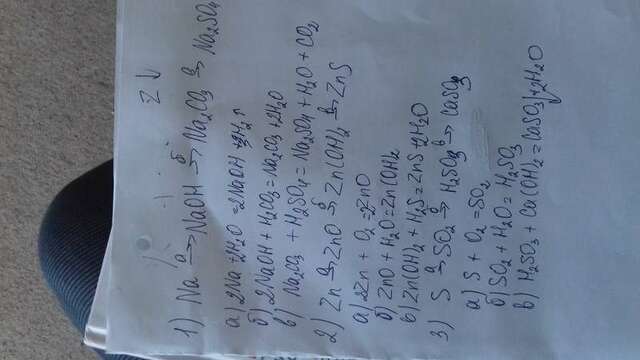 2↓
1) Na —а→ NaOH —б→ Na₂CO₃ —в→ Na₂SO₄
а) 2Na + 2H₂O = 2NaOH + H₂↑
б) 2NaOH + H₂CO₃ = Na₂CO₃ + 2H₂O
в) Na₂CO₃ + H₂SO₄ = Na₂SO₄ + H₂O + CO₂
2) Zn —а→ ZnO —б→ Zn(OH)₂ —в→ ZnS
а) 2Zn + O₂ = 2ZnO
б) ZnO + H₂O = Zn(OH)₂
в) Zn(OH)₂ + H₂S = ZnS + 2H₂O
3) S —а→ SO₂ —б→ H₂SO₃ —в→ CaSO₃
а) S + O₂ = SO₂
б) SO₂ + H₂O = H₂SO₃
в) H₂SO₃ + Ca(OH)₂ = CaSO₃↓ + 2H₂O